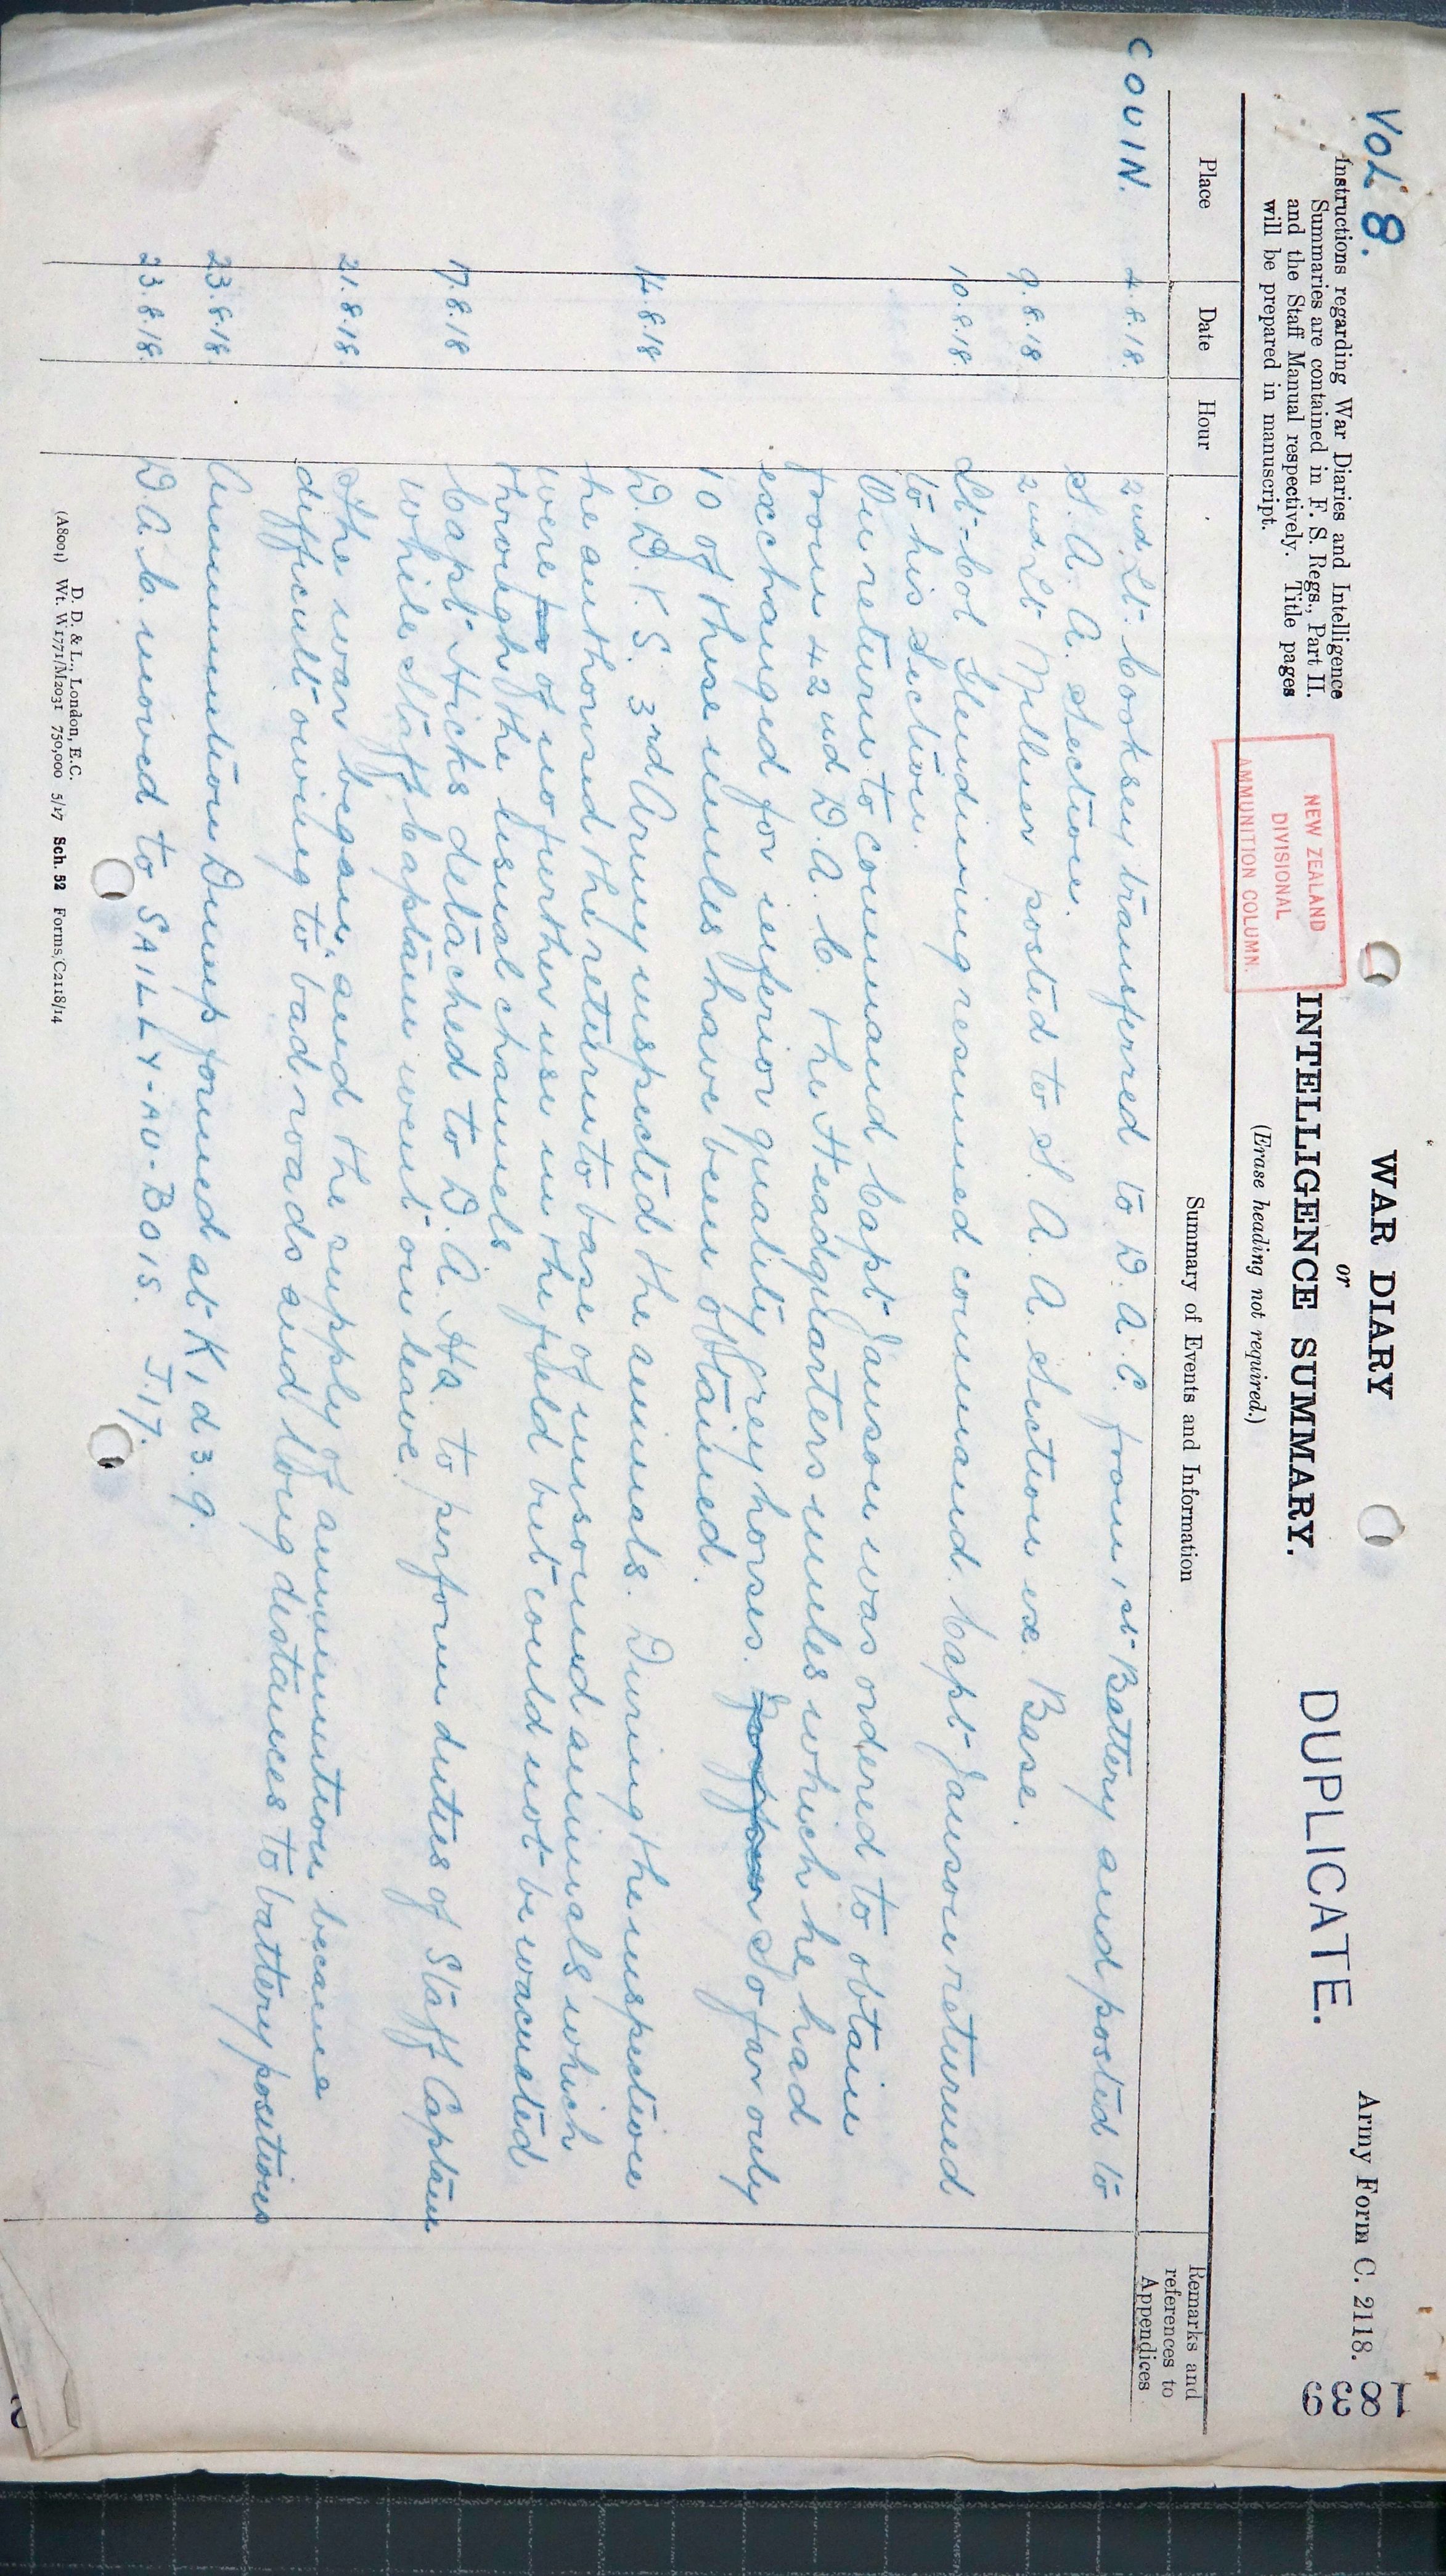 Vol 8.
WAR DIARY
or
INTELLIGENCE SUMMARY.
(Erase heading not required.)
DUPLICATE.
Army Form C. 2118.
1839
Instructions regarding War Diaries and Intelligence
Summaries are contained in F. S. Regs., Part II.
and the Staff Manual respectively. Title pages
will be prepared in manuscript.
NEW ZEALAND
DIVISIONAL
AMMUNITION COLUMN.
Place Date Hour Summary of Events and Information Remarks and
references to
Appendices
COUIN. 4.8.18. 2nd. Lt. Cooksey transferred to D.A.C. from 1st Battery and posted to
S. A. A. Section.
9.8.18 2nd Lt Milner posted to S. A. A. Section ex Base.
10.8.18. Lt-Col Glendining resumed command. Capt Janson returned
to his Section.
On return to command Capt Janson was ordered to obtain
from 42nd D. A. C. the Headquarters mules which he had
exchanged for inferior quality grey horses. So far only
10 of these mules have been obtained.
14.8.18 D. D. V. S. 3rd Army inspected the animals. During the inspection
he authorised the return to base of unsound animals which
were to of no further use in the field but could not be evacuated
through the usual channels
17.8.18 Capt Hicks detached to D. A. HQ. to perform duties of Staff Captain
while Staff Captain went on leave.
21.8.18. The war began, and the supply of ammunition became
difficult owing to bad roads and long distances to battery positions
23.8.18. Ammunition Dump formed at K1 d 3.9.
23.8.18. D. A. C. moved to SAILLY-AU-BOIS. J.17.
D. D. & L., London, E.C.
(A8004) Wt. W1771/M2031 750,000 5/17 Sch. 52 Forms/C2118/14